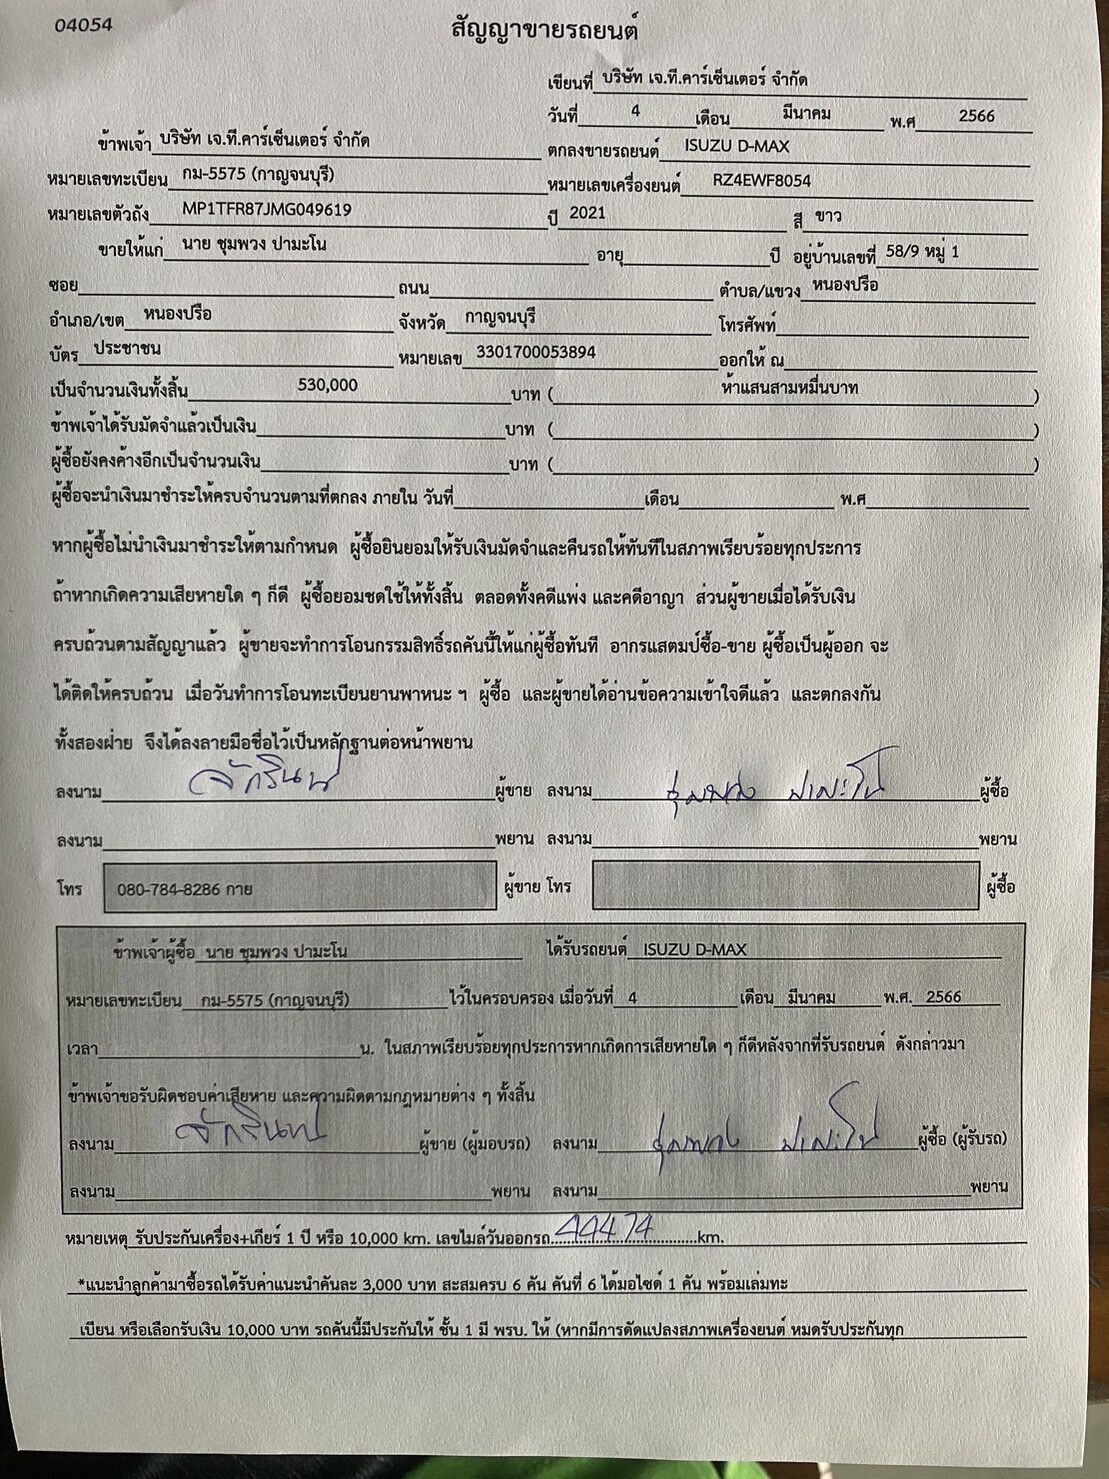 04054
สัญญาขายรถยนต์
เขียนที่ บริษัท เจ.ที.คาร์เซ็นเตอร์ จำกัด
วันที่ 4 เดือน มีนาคม พ.ศ 2566
ข้าพเจ้า บริษัท เจ.ที.คาร์เซ็นเตอร์ จำกัด ตกลงขายรถยนต์ ISUZU D-MAX
หมายเลขทะเบียน กม-5575 (กาญจนบุรี) หมายเลขเครื่องยนต์ RZ4EWF8054
หมายเลขตัวถัง MP1TFR87JMG049619 ปี 2021 สี ขาว
ขายให้แก่ นาย ชุมพวง ปามะโน อายุ ปี อยู่บ้านเลขที่ 58/9 หมู่ 1
ซอย ถนน ตำบล/แขวง หนองปรือ
อำเภอ/เขต หนองปรือ จังหวัด กาญจนบุรี โทรศัพท์
บัตร ประชาชน หมายเลข 3301700053894 ออกให้ ณ
เป็นจำนวนเงินทั้งสิ้น 530,000 บาท ( ห้าแสนสามหมื่นบาท )
ข้าพเจ้าได้รับมัดจำแล้วเป็นเงิน บาท ( )
ผู้ซื้อยังคงค้างอีกเป็นจำนวนเงิน บาท ( )
ผู้ซื้อจะนำเงินมาชำระให้ครบจำนวนตามที่ตกลง ภายใน วันที่ เดือน พ.ศ
หากผู้ซื้อไม่นำเงินมาชำระให้ตามกำหนด ผู้ซื้อยินยอมให้รับเงินมัดจำและคืนรถให้ทันทีในสภาพเรียบร้อยทุกประการ
ถ้าหากเกิดความเสียหายใด ๆ ก็ดี ผู้ซื้อยอมชดใช้ให้ทั้งสิ้น ตลอดทั้งคดีแพ่ง และคดีอาญา ส่วนผู้ขายเมื่อได้รับเงิน
ครบถ้วนตามสัญญาแล้ว ผู้ขายจะทำการโอนกรรมสิทธิ์รถคันนี้ให้แก่ผู้ซื้อทันที อากรแสตมป์ซื้อ-ขาย ผู้ซื้อเป็นผู้ออก จะ
ได้ติดให้ครบถ้วน เมื่อวันทำการโอนทะเบียนยานพาหนะ ฯ ผู้ซื้อ และผู้ขายได้อ่านข้อความเข้าใจดีแล้ว และตกลงกัน
ทั้งสองฝ่าย จึงได้ลงลายมือชื่อไว้เป็นหลักฐานต่อหน้าพยาน
ลงนาม จักรินทร์ ผู้ขาย ลงนาม ชุมพวง ปามะโน ผู้ซื้อ
ลงนาม พยาน ลงนาม พยาน
โทร 080-784-8286 กาย ผู้ขาย โทร ผู้ซื้อ
ข้าพเจ้าผู้ซื้อ นาย ชุมพวง ปามะโน ได้รับรถยนต์ ISUZU D-MAX
หมายเลขทะเบียน กม-5575 (กาญจนบุรี) ไว้ในครอบครอง เมื่อวันที่ 4 เดือน มีนาคม พ.ศ. 2566
เวลา น. ในสภาพเรียบร้อยทุกประการหากเกิดการเสียหายใด ๆ ก็ดีหลังจากที่รับรถยนต์ ดังกล่าวมา
ข้าพเจ้าขอรับผิดชอบค่าเสียหาย และความผิดตามกฎหมายต่าง ๆ ทั้งสิ้น
ลงนาม จักรินทร์ ผู้ขาย (ผู้มอบรถ) ลงนาม ชุมพวง ปามะโน ผู้ซื้อ (ผู้รับรถ)
ลงนาม พยาน ลงนาม พยาน
หมายเหตุ รับประกันเครื่อง+เกียร์ 1 ปี หรือ 10,000 km. เลขไมล์วันออกรถ 44474 km.
*แนะนำลูกค้ามาซื้อรถได้รับค่าแนะนำคันละ 3,000 บาท สะสมครบ 6 คัน คันที่ 6 ได้มอไซด์ 1 คัน พร้อมเล่มทะ
เบียน หรือเลือกรับเงิน 10,000 บาท รถคันนี้มีประกันให้ ชั้น 1 มี พรบ. ให้ (หากมีการดัดแปลงสภาพเครื่องยนต์ หมดรับประกันทุก